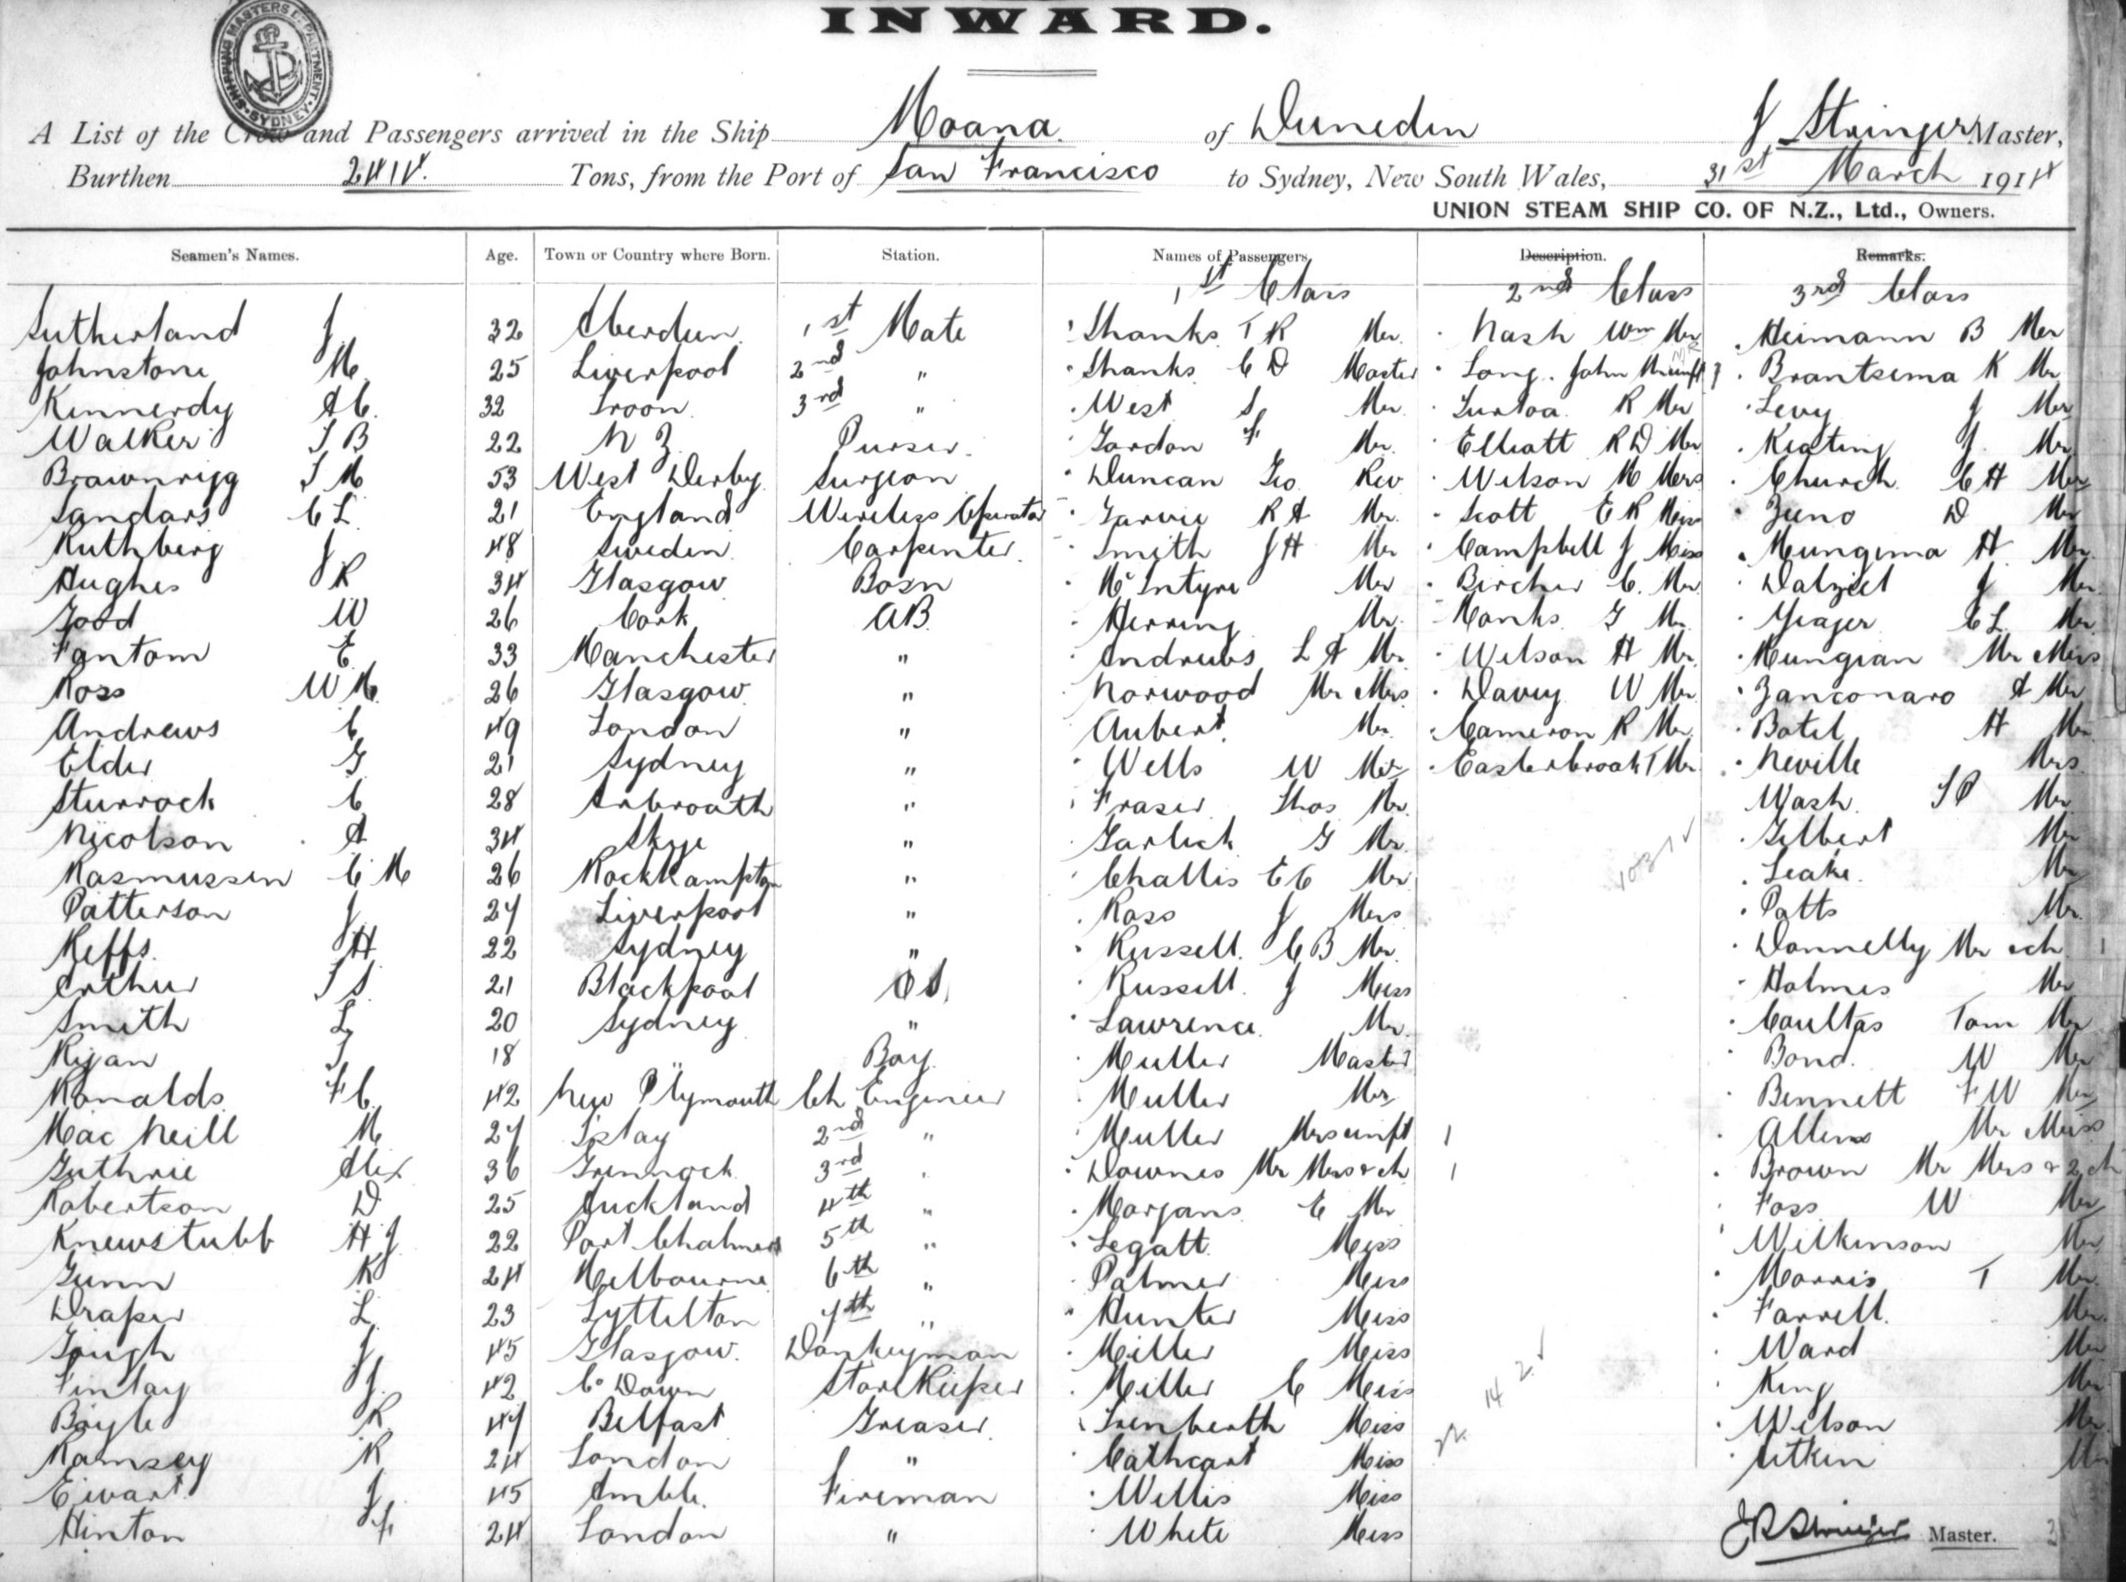 INWARD.
SHIPPING MASTERS DEPARTMENT SYDNEY
A List of the Crew and Passengers arrived in the Ship Moana of Dunedin J Stringer Master,
Burthen 2414 Tons, from the Port of San Francisco to Sydney, New South Wales, 31st March 1914
UNION STEAM SHIP CO. OF N.Z., Ltd., Owners.
Seamen's Names. Age. Town or Country where Born. Station. Names of Passengers Description. Remarks.
1st Class 2nd Class 3rd Class
Sutherland J 32 Aberdeen 1st Mate Shanks T R Mr Nash Wm Mr Heimann B Mr
Johnstone M 25 Liverpool 2nd " Shanks C D Master Long John Mr Brantsema K Mr
Kennerdy A C 32 Troon 3rd " West S Mr Turloa R Mr Levy J Mr
Walker T B 22 N Z Purser Gordon F Mr Elliott R D Mr Keating J Mr
Brownrigg T M 53 West Derby Surgeon Duncan Geo Rev Wilson M Mrs Church C H Mr
Sandars C L 21 England Wireless Operator Garvie R A Mr Scott E R Miss Zuno D Mr
Ruthberg J 48 Sweden Carpenter Smith J H Mr Campbell J Miss Mungema H Mr
Hughes R 34 Glasgow Bosn McIntyre Mr Bircher C Mr Dalziel J Mr
Good W 26 Cork AB Herring Mr Monks G Mr Yeager C L Mr
Fantom E 33 Manchester " Andrews L A Mr Wilson H Mr Mungean Mr Mrs
Ross W M 26 Glasgow " Norwood Mr Mrs Davey W Mr Zanconaro A Mr
Andrews C 49 London " Aubert Mr Cameron R Mr Botel H Mr
Elder G 21 Sydney " Wells W Mr Easterbrook T Mr Neville Mrs
Sturrock C 28 Arbroath " Fraser Thos Mr Wash T P Mr
Nicolson A 34 Skye " Garlick G Mr Gilbert Mr
Rasmussen C M 26 Rockhampton " Challis E C Mr Leake Mr
Patterson J 27 Liverpool " Ross J Mrs Potts Mr
Keffs H 22 Sydney " Russell C B Mr Donnelly Mr & ch 1
Arthur T S 21 Blackpool OS Russell J Miss Holmes Mr
Smith L 20 Sydney " Lawrence Mr Coultas Tom Mr
Ryan T 18 " Boy Muller Master Bond W Mr
Ronalds F C 42 New Plymouth Ch Engineer Muller Mr Bennett F W Mr
Mac Neill M 27 Islay 2nd " Muller Mrs & inft 1 Allens Mr Miss
Guthrie Alex 36 Greenock 3rd " Downes Mr Mrs & ch 1 Brown Mr Mrs & 2 ch
Robertson D 25 Auckland 4th " Morgans E Mr Foss W Mr
Knewstubb H J 22 Port Chalmers 5th " Legatt Miss Wilkinson Mr
Gunn K 24 Melbourne 6th " Palmer Miss Morris T Mr
Draper L 23 Lyttelton 7th " Hunter Miss Farrell Mr
Gough J 45 Glasgow Donkeyman Miller Miss Ward Mr
Finlay J 42 Co Down StoreKeeper Miller C Miss King Mr
Boyle R 47 Belfast Greaser Trenberth Miss Wilson Mr
Ramsey R 24 London " Cathcart Miss Aitkin Mr
Ewart J 45 Amble Fireman Willis Miss
Hinton F 24 London " White Miss J R Stringer Master.